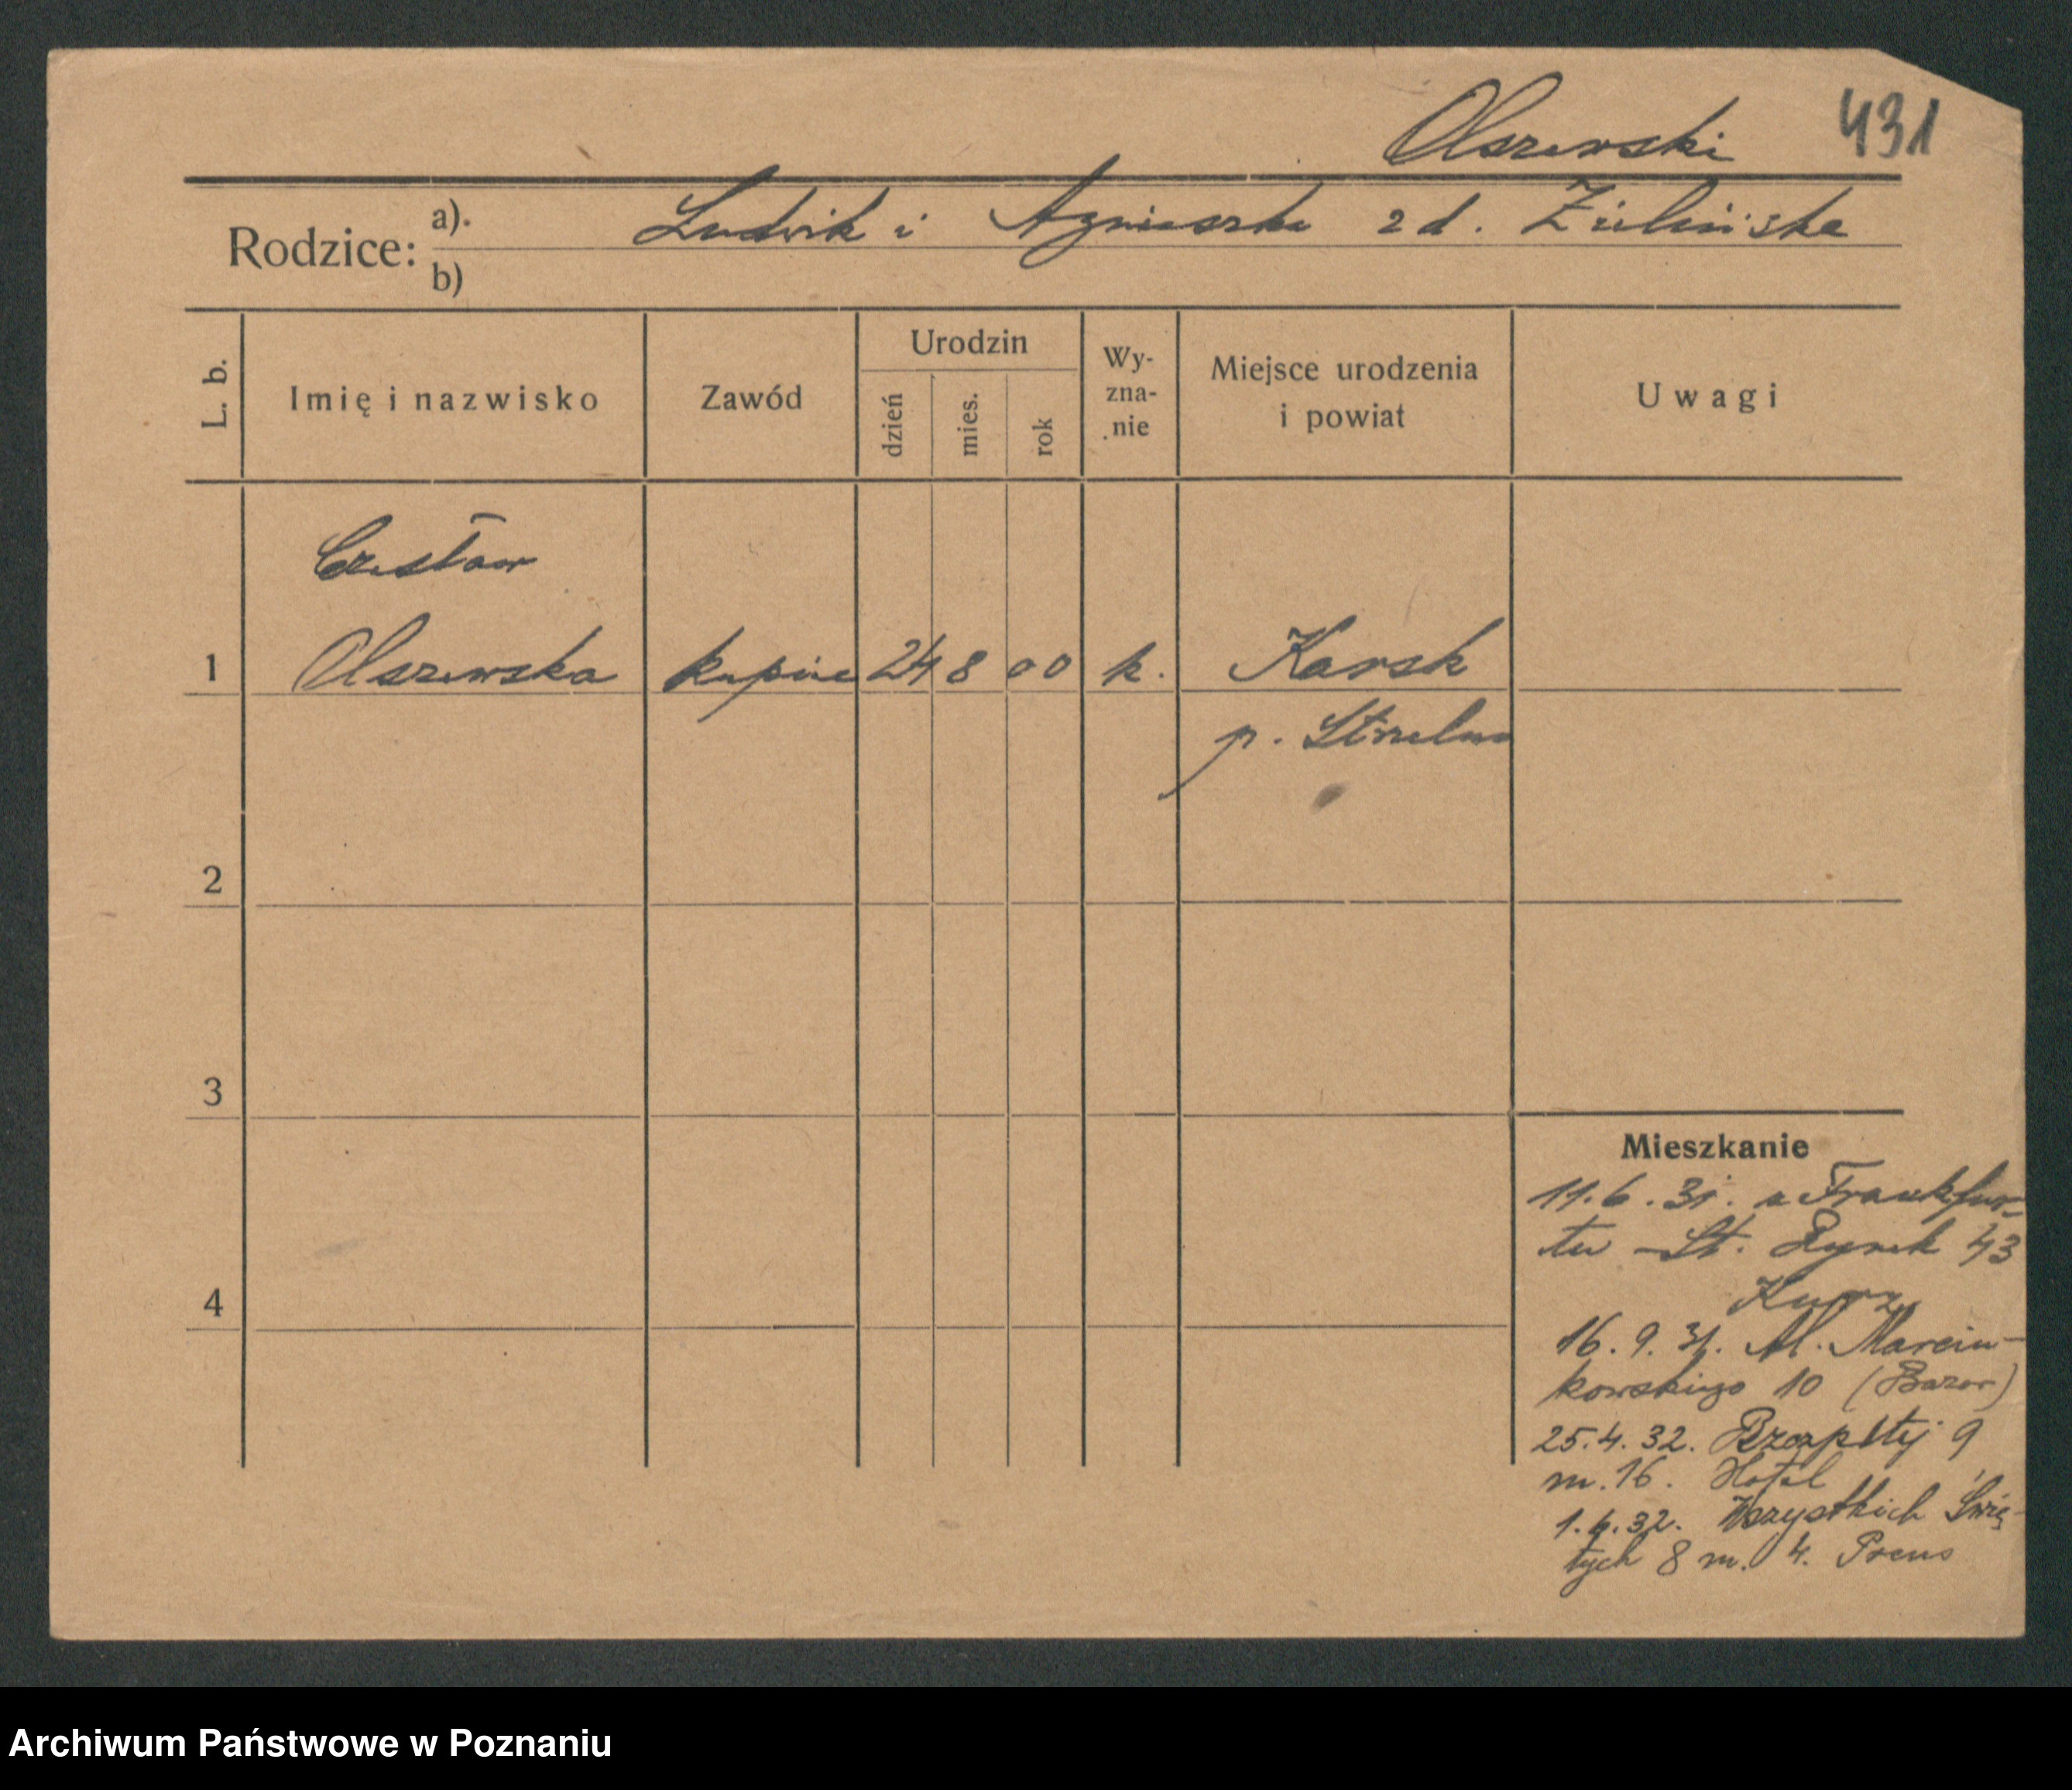 Olszewski 431
Rodzice: a). Ludwik i Agnieszka z d. Zielińska
b)
L. b. Imię i nazwisko Zawód Urodzin dzień mies. rok Wy-zna-nie Miejsce urodzenia i powiat Uwagi
Czesław
1 Olszewska kupiec 24 8 00 k. Karsk
p. Strzelno
2
3
Mieszkanie
11.6.31. z Frankfur-
tu St. Rynek 43
4
Kurz
16.9.31. Al. Marcin-
kowskiego 10 (Bazar)
25.4.32. Rzeapltej 9
m.16. Hotel
1.6.32. Wszystkich Świę-
tych 8 m. 4.
Archiwum Państwowe w Poznaniu